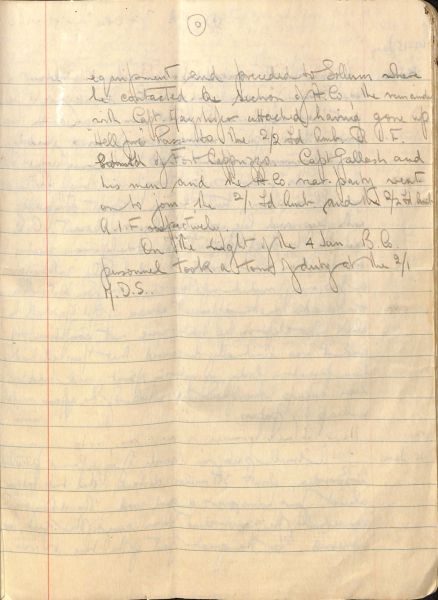 equipment and proceeded to Sollum where
he contacted the section of H.Co, the remainder
with Capt. attached having gone up
"Hell fire" Pass into the 2/2 Fd Amb A.I.F.
South of Fort Capuzzo. Capt Gallash and
his men and the H.Co. rear party went
on to join the 2/1 Fd Amb and the 2/2 Fd Amb
A.I.F. respectively.
On the night of the 4 Jan B Co.
personnel took a tour of duty at the 2/1
M.D.S.